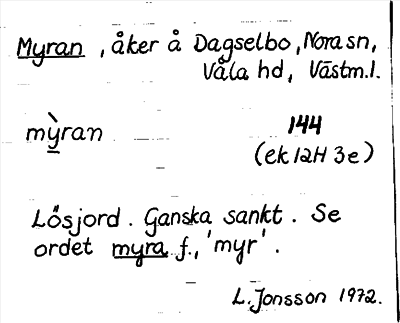 Myran, åker å Dagselbo, Nora sn,
Våla hd, Västm.l.
mỳran 144
(ek 12H 3e)
Lösjord. Ganska sankt. Se
ordet myra f., 'myr'.
L. Jonsson 1972.